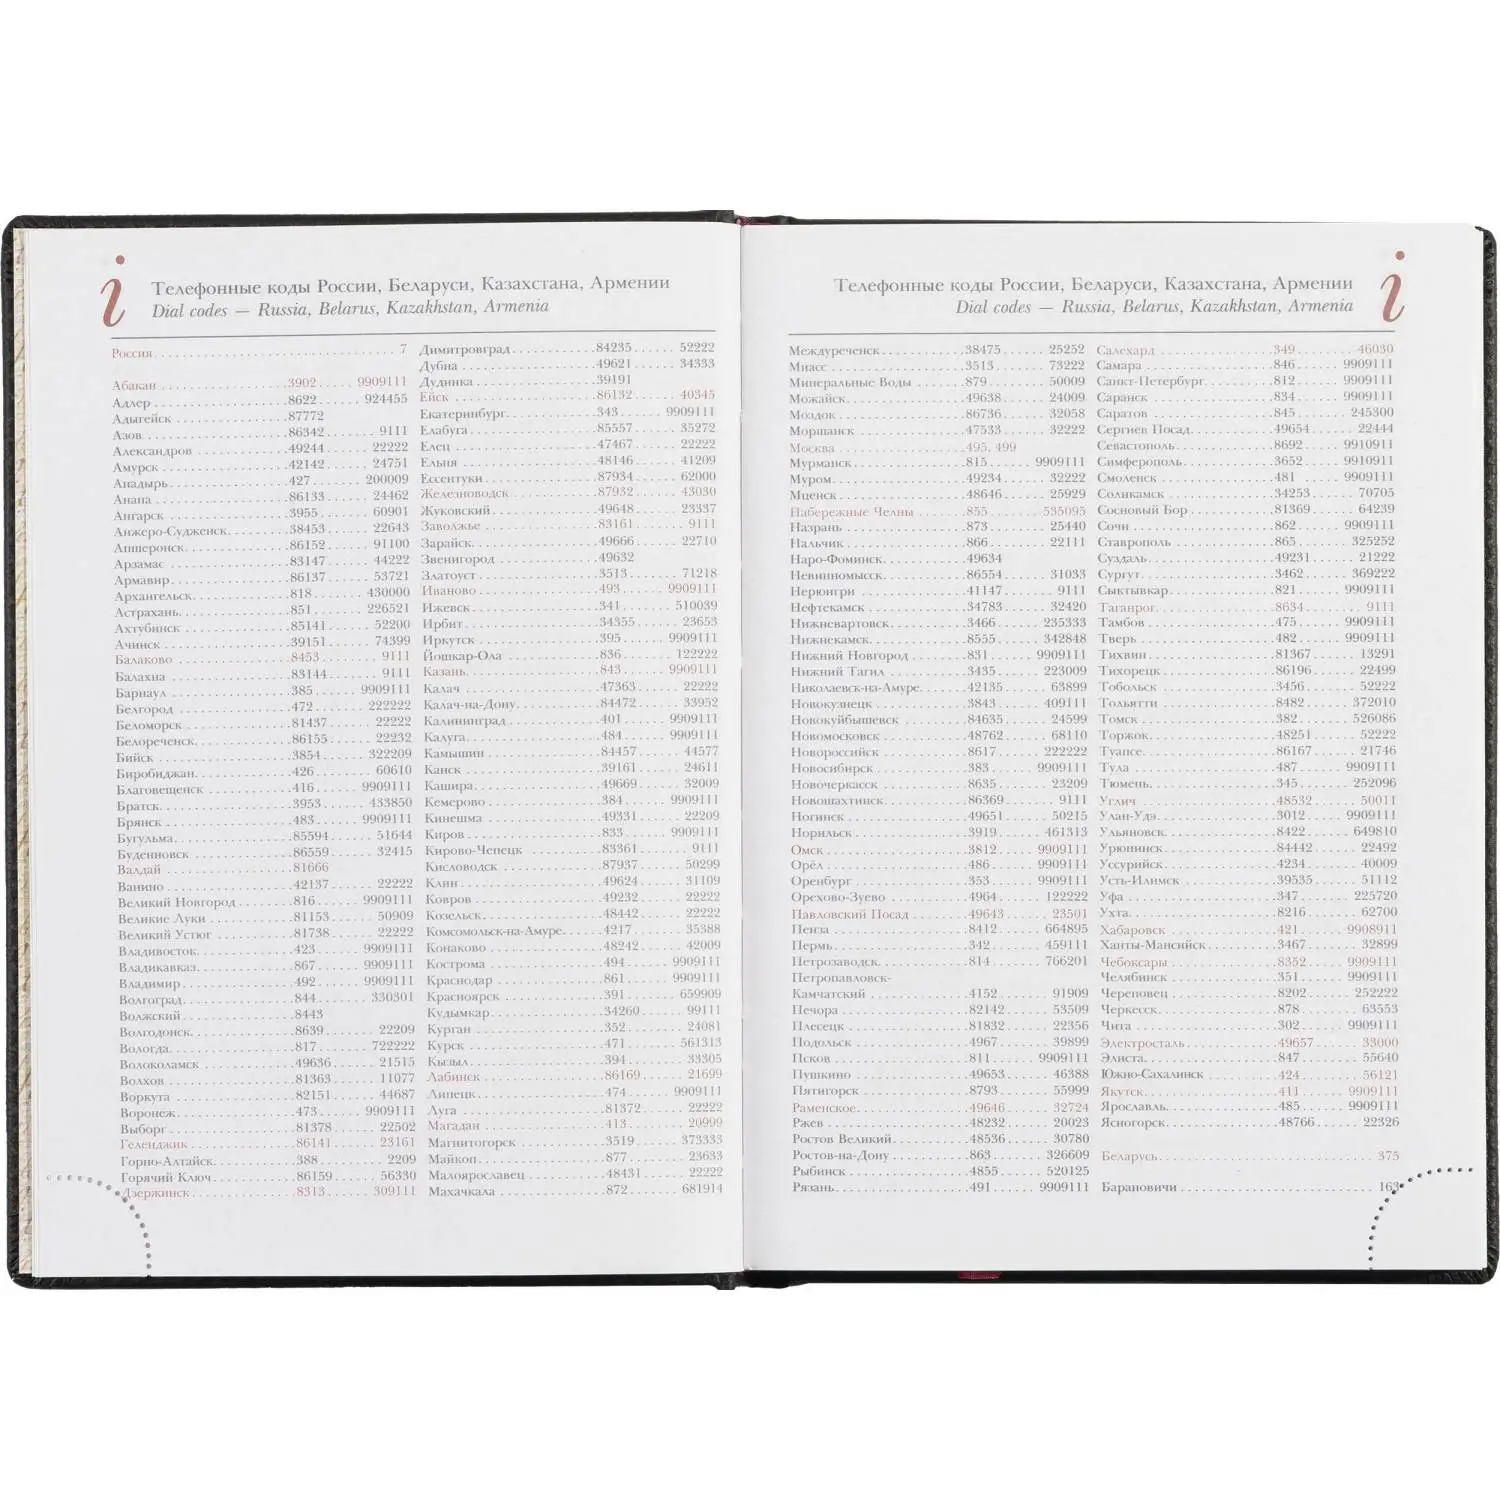 i
Телефонные коды России, Беларуси, Казахстана, Армении
Dial codes — Russia, Belarus, Kazakhstan, Armenia
Россия 7
Абакан 3902 9909111
Адлер 8622 924455
Адыгейск 87772
Азов 86342 9111
Александров 49244 22222
Амурск 42142 24751
Анадырь 427 200009
Анапа 86133 24462
Ангарск 3955 60901
Анжеро-Судженск 38453 22643
Апшеронск 86152 91100
Арзамас 83147 44222
Армавир 86137 53721
Архангельск 818 430000
Астрахань 851 226521
Ахтубинск 85141 52200
Ачинск 39151 74399
Балаково 8453 9111
Балахна 83144 9111
Барнаул 385 9909111
Белгород 472 222222
Беломорск 81437 22222
Белореченск 86155 22232
Бийск 3854 322209
Биробиджан 426 60610
Благовещенск 416 9909111
Братск 3953 433850
Брянск 483 9909111
Бугульма 85594 51644
Буденновск 86559 32415
Валдай 81666
Ванино 42137 22222
Великий Новгород 816 9909111
Великие Луки 81153 50909
Великий Устюг 81738 22222
Владивосток 423 9909111
Владикавказ 867 9909111
Владимир 492 9909111
Волгоград 844 330301
Волжский 8443
Волгодонск 8639 22209
Вологда 817 722222
Волоколамск 49636 21515
Волхов 81363 11077
Воркута 82151 44687
Воронеж 473 9909111
Выборг 81378 22502
Геленджик 86141 23161
Горно-Алтайск 388 2209
Горячий Ключ 86159 56330
Дзержинск 8313 309111
Димитровград 84235 52222
Дубна 49621 34333
Дудинка 39191
Ейск 86132 40345
Екатеринбург 343 9909111
Елабуга 85557 35272
Елец 47467 22222
Ельня 48146 41209
Ессентуки 87934 62000
Железноводск 87932 43030
Жуковский 49648 23337
Заволжье 83161 9111
Зарайск 49666 22710
Звенигород 49632
Златоуст 3513 71218
Иваново 493 9909111
Ижевск 341 510039
Ирбит 34355 23653
Иркутск 395 9909111
Йошкар-Ола 836 122222
Казань 843 9909111
Калач 47363 22222
Калач-на-Дону 84472 33952
Калининград 401 9909111
Калуга 484 9909111
Камышин 84457 44577
Канск 39161 24611
Кашира 49669 32009
Кемерово 384 9909111
Кинешма 49331 22209
Киров 833 9909111
Кирово-Чепецк 83361 9111
Кисловодск 87937 50299
Клин 49624 31109
Ковров 49232 22222
Козельск 48442 22222
Комсомольск-на-Амуре 4217 35388
Конаково 48242 42009
Кострома 494 9909111
Краснодар 861 9909111
Красноярск 391 659909
Кудымкар 34260 99111
Курган 352 24081
Курск 471 561313
Кызыл 394 33305
Лабинск 86169 21699
Липецк 474 9909111
Луга 81372 22222
Магадан 413 20999
Магнитогорск 3519 373333
Майкоп 877 23633
Малоярославец 48431 22222
Махачкала 872 681914
Телефонные коды России, Беларуси, Казахстана, Армении
Dial codes — Russia, Belarus, Kazakhstan, Armenia
i
Междуреченск 38475 25252
Миасс 3513 73222
Минеральные Воды 879 50009
Можайск 49638 24009
Моздок 86736 32058
Моршанск 47533 32222
Москва 495, 499
Мурманск 815 9909111
Муром 49234 32222
Мценск 48646 25929
Набережные Челны 855 535095
Назрань 873 25440
Нальчик 866 22111
Наро-Фоминск 49634
Невинномысск 86554 31033
Нерюнгри 41147 9111
Нефтекамск 34783 32420
Нижневартовск 3466 235333
Нижнекамск 8555 342848
Нижний Новгород 831 9909111
Нижний Тагил 3435 223009
Николаевск-на-Амуре 42135 63899
Новокузнецк 3843 409111
Новокуйбышевск 84635 24599
Новомосковск 48762 68110
Новороссийск 8617 222222
Новосибирск 383 9909111
Новочеркасск 8635 23209
Новошахтинск 86369 9111
Ногинск 49651 50215
Норильск 3919 461313
Омск 3812 9909111
Орёл 486 9909111
Оренбург 353 9909111
Орехово-Зуево 4964 122222
Павловский Посад 49643 23501
Пенза 8412 664895
Пермь 342 459111
Петрозаводск 814 766201
Петропавловск-
Камчатский 4152 91909
Печора 82142 53509
Плесецк 81832 22356
Подольск 4967 39899
Псков 811 9909111
Пушкино 49653 46388
Пятигорск 8793 55999
Раменское 49646 32724
Ржев 48232 20023
Ростов Великий 48536 30780
Ростов-на-Дону 863 326609
Рыбинск 4855 520125
Рязань 491 9909111
Салехард 349 46030
Самара 846 9909111
Санкт-Петербург 812 9909111
Саранск 834 9909111
Саратов 845 245300
Сергиев Посад 49654 22444
Севастополь 8692 9910911
Симферополь 3652 9910911
Смоленск 481 9909111
Соликамск 34253 70705
Сосновый Бор 81369 64239
Сочи 862 9909111
Ставрополь 865 325252
Суздаль 49231 21222
Сургут 3462 369222
Сыктывкар 821 9909111
Таганрог 8634 9111
Тамбов 475 9909111
Тверь 482 9909111
Тихвин 81367 13291
Тихорецк 86196 22499
Тобольск 3456 52222
Тольятти 8482 372010
Томск 382 526086
Торжок 48251 52222
Туапсе 86167 21746
Тула 487 9909111
Тюмень 345 252096
Углич 48532 50011
Улан-Удэ 3012 9909111
Ульяновск 8422 649810
Урюпинск 84442 22492
Уссурийск 4234 40009
Усть-Илимск 39535 51112
Уфа 347 225720
Ухта 8216 62700
Хабаровск 421 9908911
Ханты-Мансийск 3467 32899
Чебоксары 8352 9909111
Челябинск 351 9909111
Череповец 8202 252222
Черкесск 878 63553
Чита 302 9909111
Электросталь 49657 33000
Элиста 847 55640
Южно-Сахалинск 424 56121
Якутск 411 9909111
Ярославль 485 9909111
Ясногорск 48766 22326
Беларусь 375
Барановичи 163